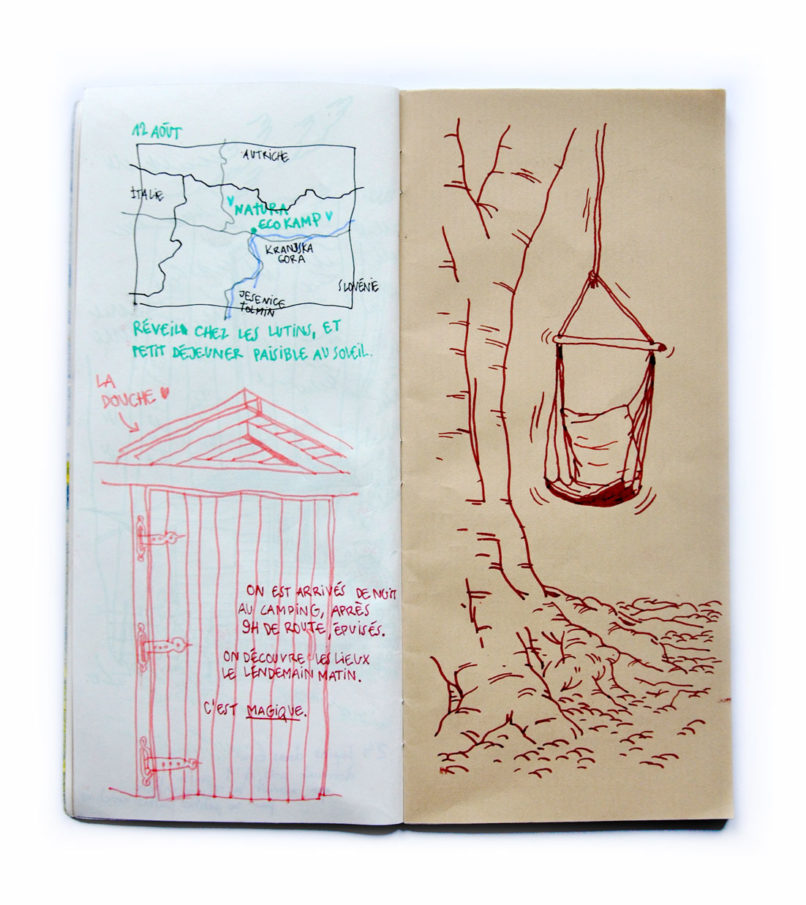 12 AOÛT
AUTRICHE
ITALIE
NATURA
ECO KAMP
KRANJSKA
GORA
SLOVÉNIE
JESENICE
TOLMIN
RÉVEIL CHEZ LES LUTINS, ET
PETIT DÉJEUNER PAISIBLE AU SOLEIL.
LA
DOUCHE ♥
ON EST ARRIVÉS DE NUIT
AU CAMPING, APRÈS
9H DE ROUTE, ÉPUISÉS.
ON DÉCOUVRE LES LIEUX
LE LENDEMAIN MATIN.
C'EST MAGIQUE.